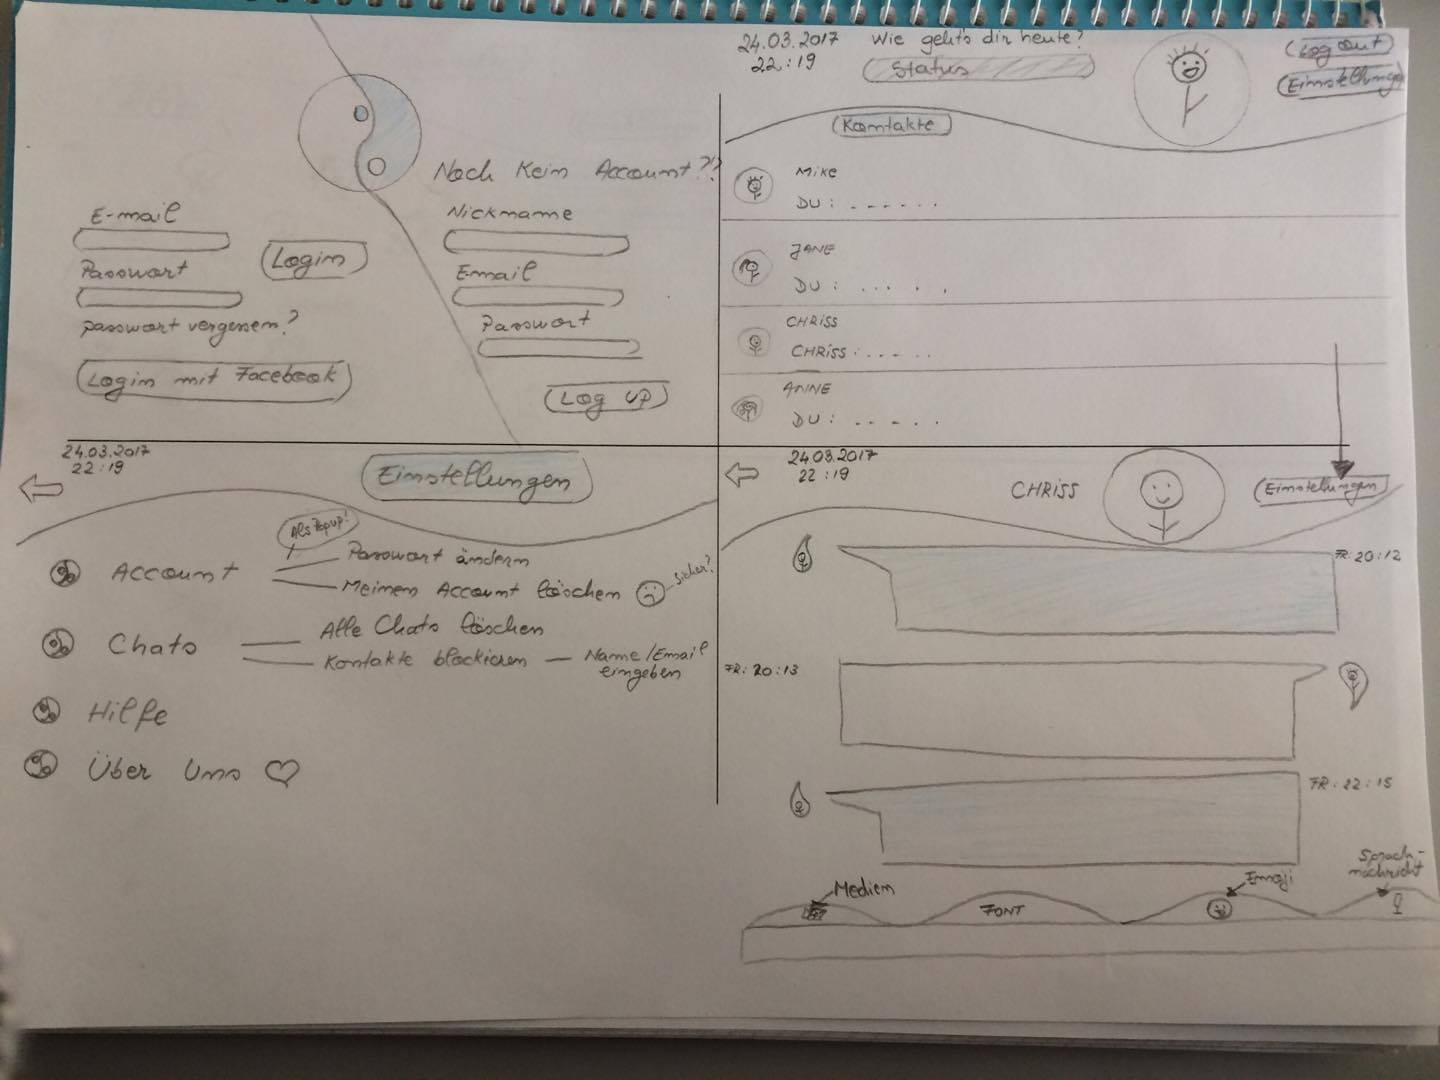 Noch kein Account??
E-mail
Login
Passwort
passwort vergessen?
Login mit Facebook
Nickname
Email
Passwort
Log up
24.03.2017
22:19
Wie geht's dir heute?
Status
Log out
Einstellungen
Kontakte
Mike
DU: . . . . . .
JANE
DU: . . . . .
CHRISS
CHRISS: . . . . .
ANNE
DU: . . . . .
24.03.2017
22:19
Einstellungen
Als Popup!
Account
Passwort ändern
Meinen Account löschen
sicher?
Chats
Alle Chats löschen
Kontakte blockieren — Name/Email
eingeben
Hilfe
Über Uns
24.03.2017
22:19
CHRISS
Einstellungen
FR: 20:12
FR: 20:13
FR: 22:15
Medien
FONT
Emoji
Sprach-
nachricht